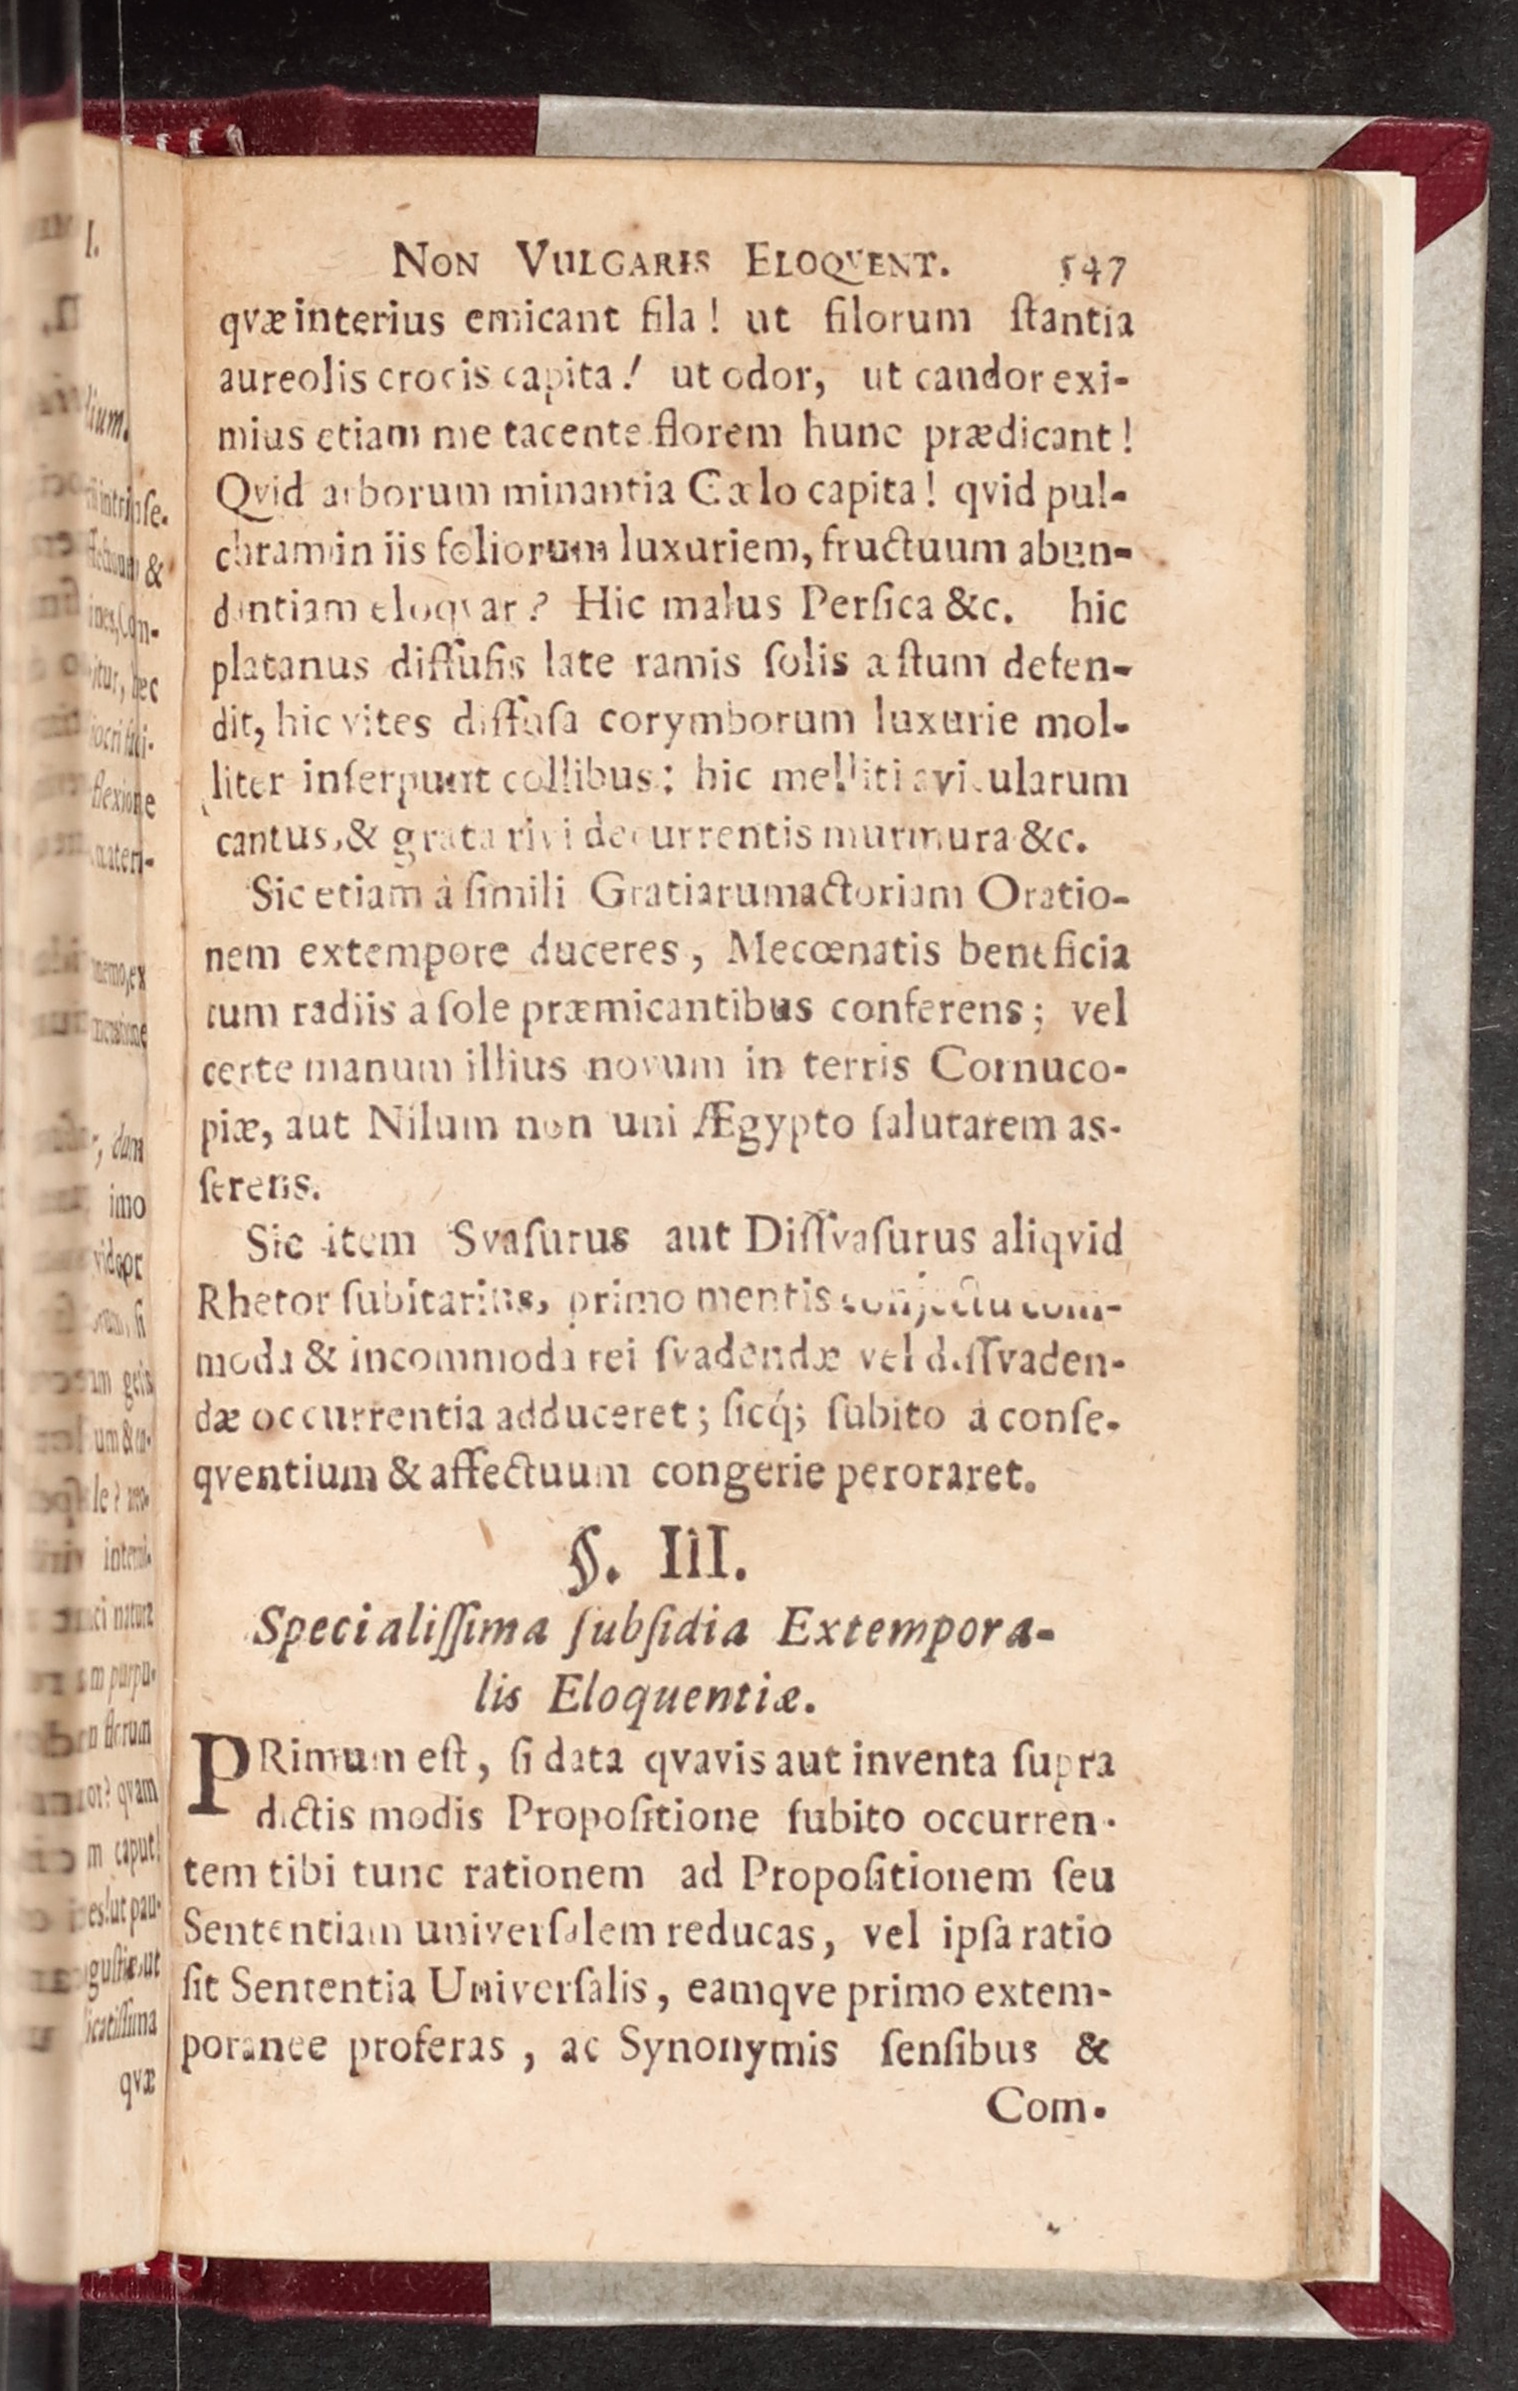 NON VULGARIS ELOQVENT. 547
qvæ interius emicant fila! ut filorum ſtantia
aureolis crocis capita! ut odor, ut candor exi-
mius etiam me tacente florem hunc prædicant!
Qvid arborum minantia Cælo capita! qvid pul-
chram in iis foliorum luxuriem, fructuum abun-
dantiam eloqvar? Hic malus Perſica &c. hic
platanus diffuſis late ramis ſolis æſtum defen-
dit, hic vites diffuſa corymborum luxurie mol-
liter inſerpunt collibus: hic melliti avicularum
cantus, & grata rivi decurrentis murmura &c.
Sic etiam à ſimili Gratiarumactoriam Oratio-
nem extempore duceres, Mecœnatis beneficia
cum radiis à ſole præmicantibus conferens; vel
certe manum illius novum in terris Cornuco-
piæ, aut Nilum non uni Ægypto ſalutarem as-
ſerens.
Sic item Svaſurus aut Diſſvaſurus aliqvid
Rhetor ſubitarius, primo mentis conjectu com-
moda & incommoda rei ſvadendæ vel diſſvaden-
dæ occurrentia adduceret; ſicq́; ſubito à conſe-
qventium & affectuum congerie peroraret.
§. III.
Specialiſſima ſubſidia Extempora-
lis Eloquentiæ.
PRimum eſt, ſi data qvavis aut inventa ſupra
dictis modis Propoſitione ſubito occurren-
tem tibi tunc rationem ad Propoſitionem ſeu
Sententiam univerſalem reducas, vel ipſa ratio
ſit Sententia Univerſalis, eamqve primo extem-
poranee proferas, ac Synonymis ſenſibus &
Com-